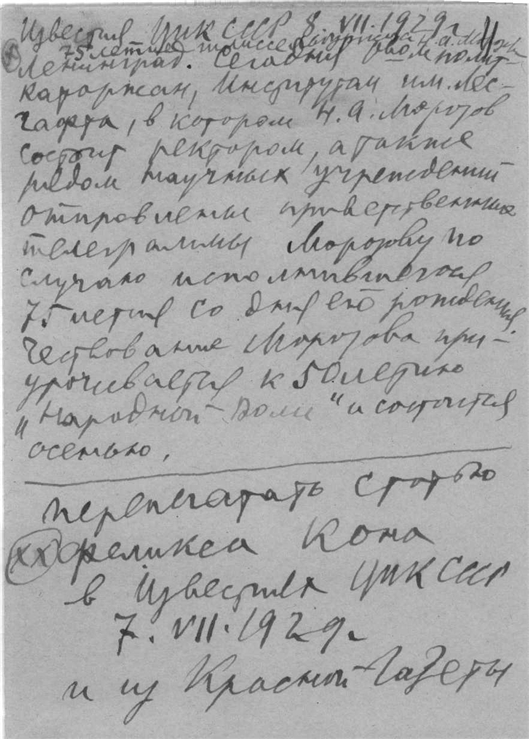 Известия ЦИК СССР 8. VII. 1929 г.
75 летие Н. А. Морозова
Ленинград. Сегодня полит-
каторжан, Институтом им. Лес-
гафта, в котором Н. А. Морозов
состоит ректором, а также
рядом научных учреждений
отправлены приветственные
телеграммы Морозову по
случаю исполнившегося
75 летия со дня его рождения.
Чествование Морозова при-
урочивается к 50 летию
„Народной Воли“ и состоится
осенью.
перепечатать статью
xx Феликса Кона
в Известиях ЦИК СССР
7. VII. 1929 г.
и из Красной Газеты